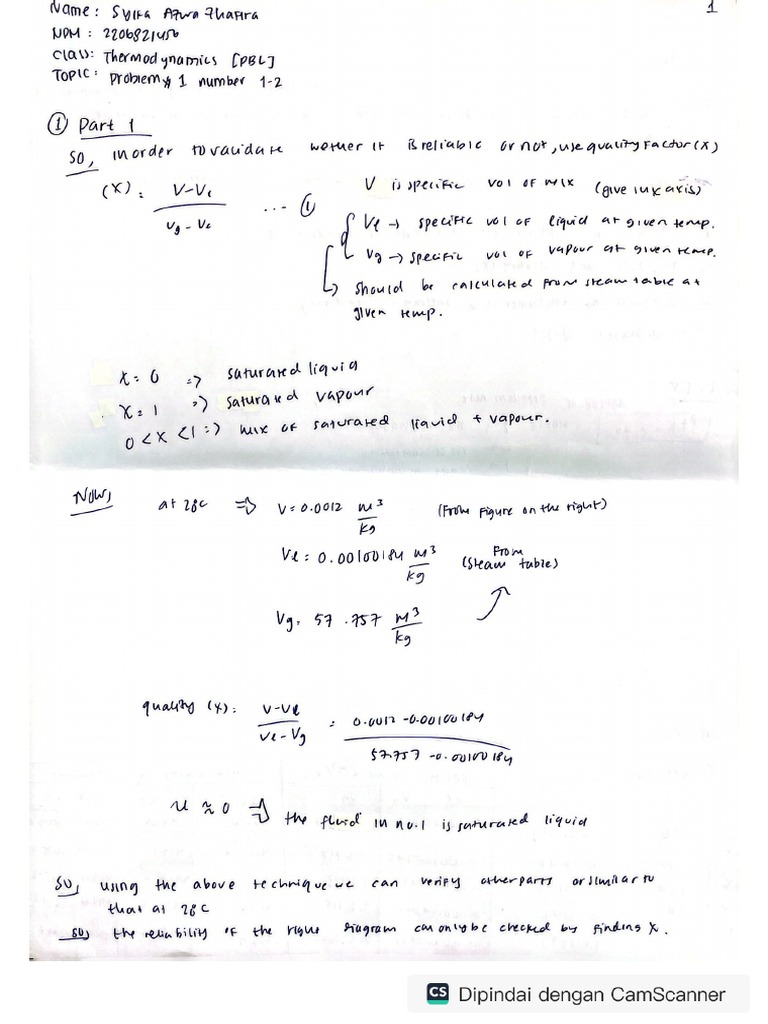 Name : Syifa Azwa Zhafira
1
NPM : 2206821456
Class : Thermodynamics [PBL]
TOPIC : Problem 1 number 1-2
① Part 1
SO, in order to validate wether it is reliable or not, use quality Factor (X)
(X) : V-Vl / Vg - Vl ... ①
V is specific vol of mix (give in x axis)
Vl → specific vol of liquid at given temp.
Vg → specific vol of vapour at given temp.
↳ should be calculated from steam table at
given temp.
X = 0 => saturated liquid
X = 1 => saturated vapour
0 < X < 1 => mix of saturated liquid + vapour.
Now, at 28C ⇒ V = 0.0012 m³/kg (From Figure on the right)
Vl = 0.00100184 m³/kg From (Steam table)
Vg = 57.757 m³/kg
quality (x) : V-Vl / Vl-Vg = 0.0012 -0.00100184 / 57.757 -0.00100184
x ≈ 0 ⇒ the fluid in no.1 is saturated liquid
SO, using the above technique we can verify other parts or similar to
that at 28C
so, the reliability of the right diagram can only be checked by finding X.
CS Dipindai dengan CamScanner